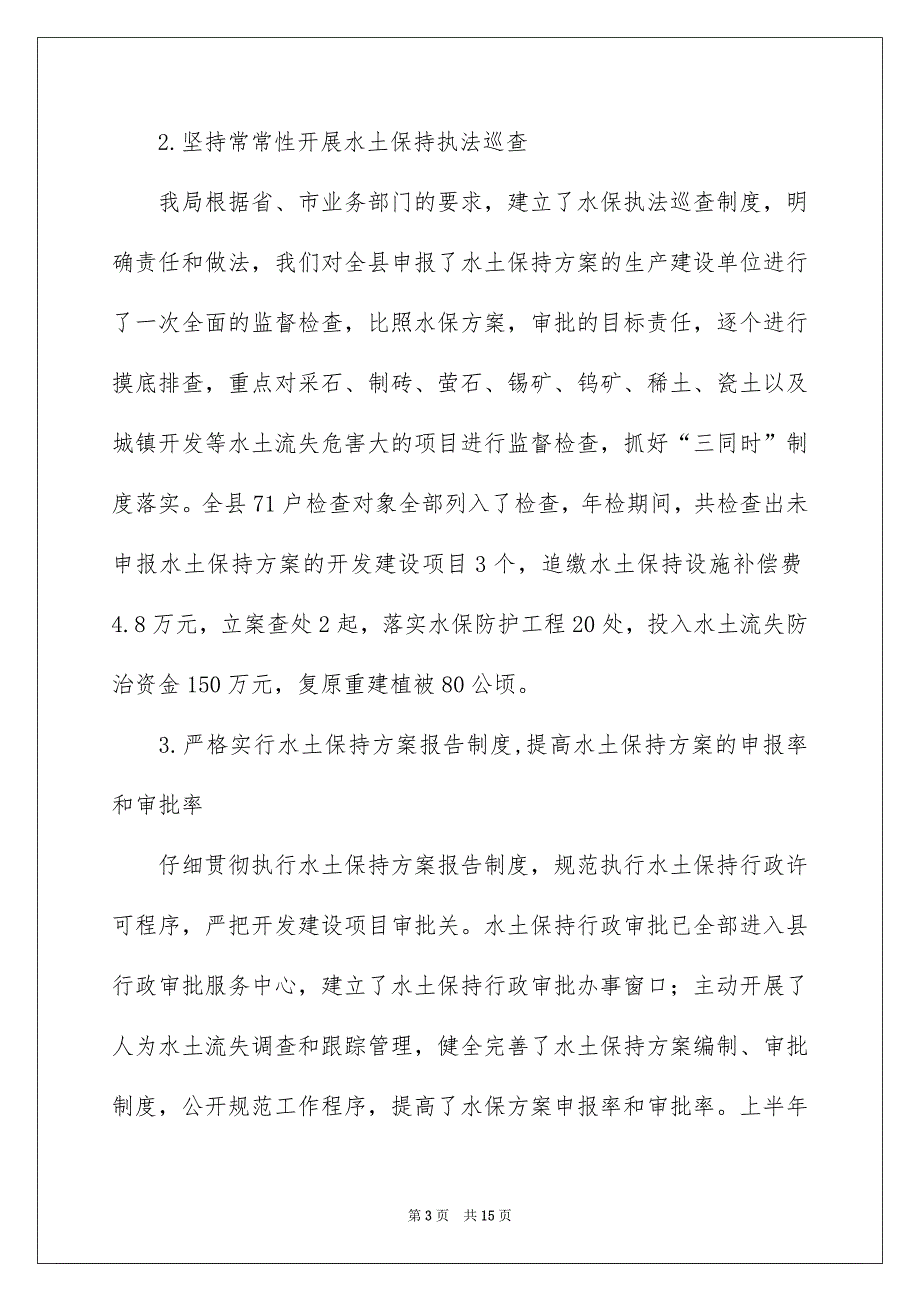 2.坚持常常性开展水土保持执法巡查
我局根据省、市业务部门的要求，建立了水保执法巡查制度，明
确责任和做法，我们对全县申报了水土保持方案的生产建设单位进行
了一次全面的监督检查，比照水保方案，审批的目标责任，逐个进行
摸底排查，重点对采石、制砖、萤石、锡矿、钨矿、稀土、瓷土以及
城镇开发等水土流失危害大的项目进行监督检查，抓好“三同时”制
度落实。全县 71 户检查对象全部列入了检查，年检期间，共检查出未
申报水土保持方案的开发建设项目 3 个，追缴水土保持设施补偿费
4.8 万元，立案查处 2 起，落实水保防护工程 20 处，投入水土流失防
治资金 150 万元，复原重建植被 80 公顷。
3.严格实行水土保持方案报告制度,提高水土保持方案的申报率
和审批率
仔细贯彻执行水土保持方案报告制度，规范执行水土保持行政许
可程序，严把开发建设项目审批关。水土保持行政审批已全部进入县
行政审批服务中心，建立了水土保持行政审批办事窗口；主动开展了
人为水土流失调查和跟踪管理，健全完善了水土保持方案编制、审批
制度，公开规范工作程序，提高了水保方案申报率和审批率。上半年
第 3 页 共 15 页